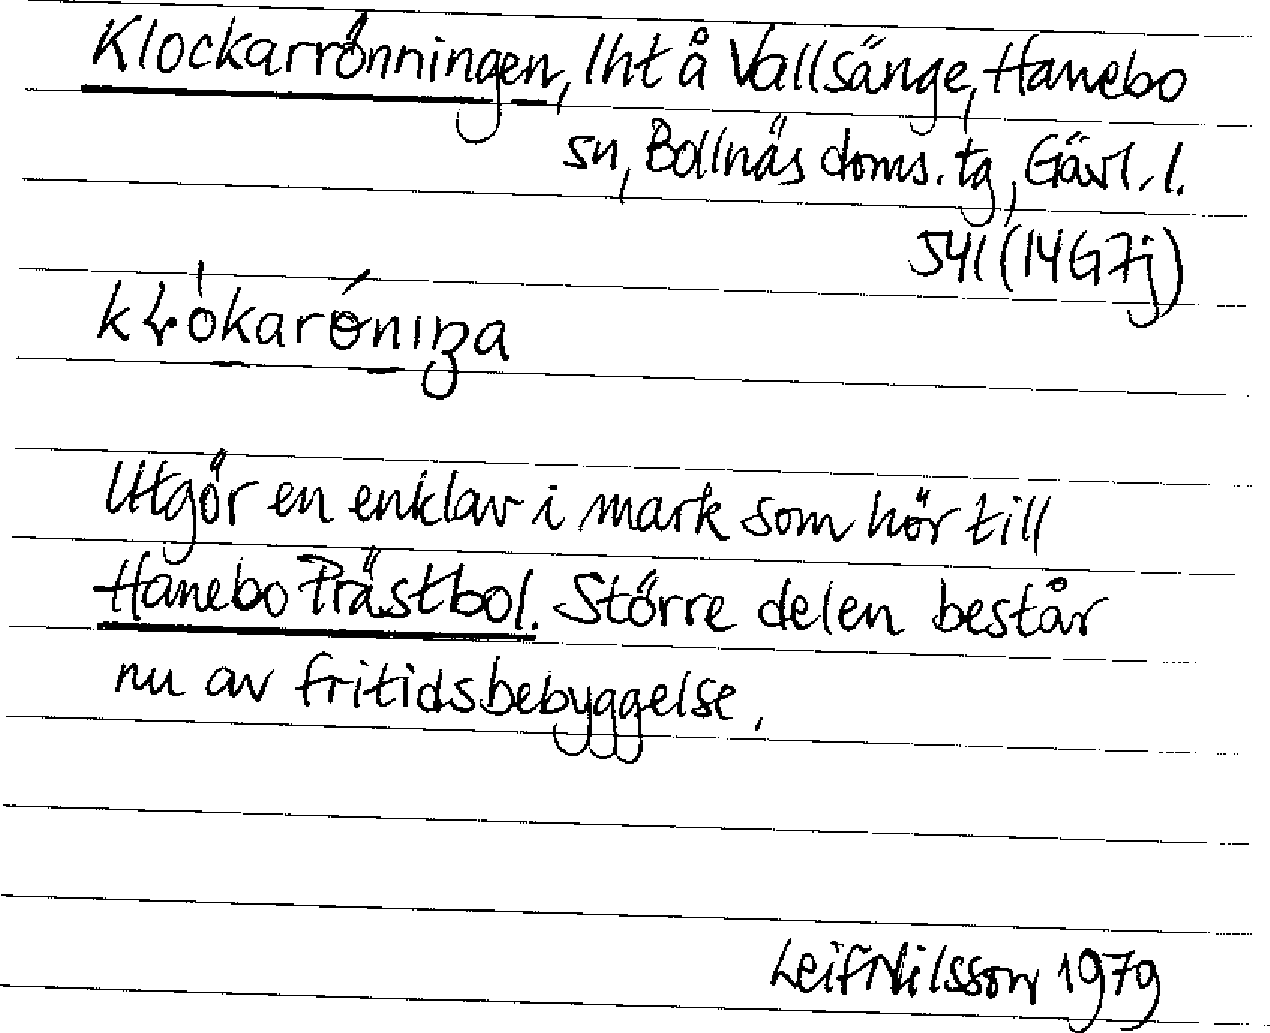 Klockarrönningen, lht å Vallsänge, Hanebo
sn, Bollnäs doms. tg, Gävl. l.
541 (14G7j)
kḷo̍karǿniŋa
Utgör en enklav i mark som hör till
Hanebo Prästbol. Större delen består
nu av fritidsbebyggelse.
Leif Nilsson 1979